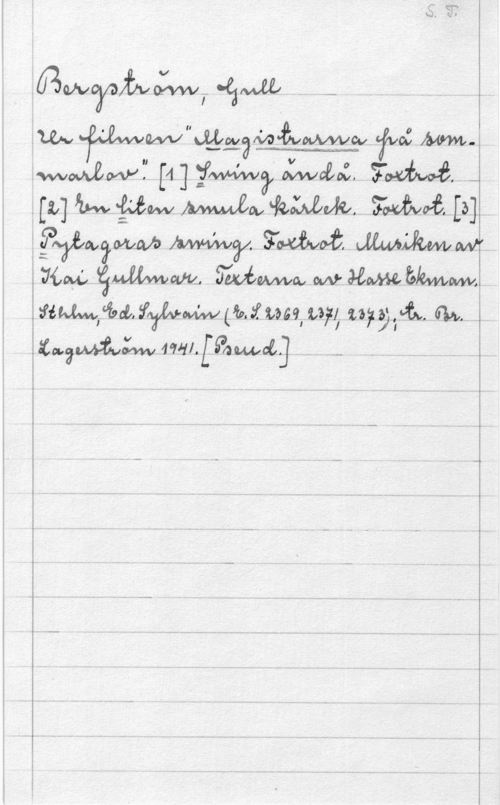 S. T.
Bergström, Gull
Ur filmen "Magistrarna på som-
marlov". [1] Swing ändå. Foxtrot.
[2] En liten smula kärlek. Foxtrot. [3]
Pytagoras swing. Foxtrot. Musiken av
Kai Gullmar. Texterna av Hasse Ekman.
Sthlm, Ed. Sylvain (E. S. 2369, 2371, 2373); tr. Br.
Lagerström 1941. [Pseud.]